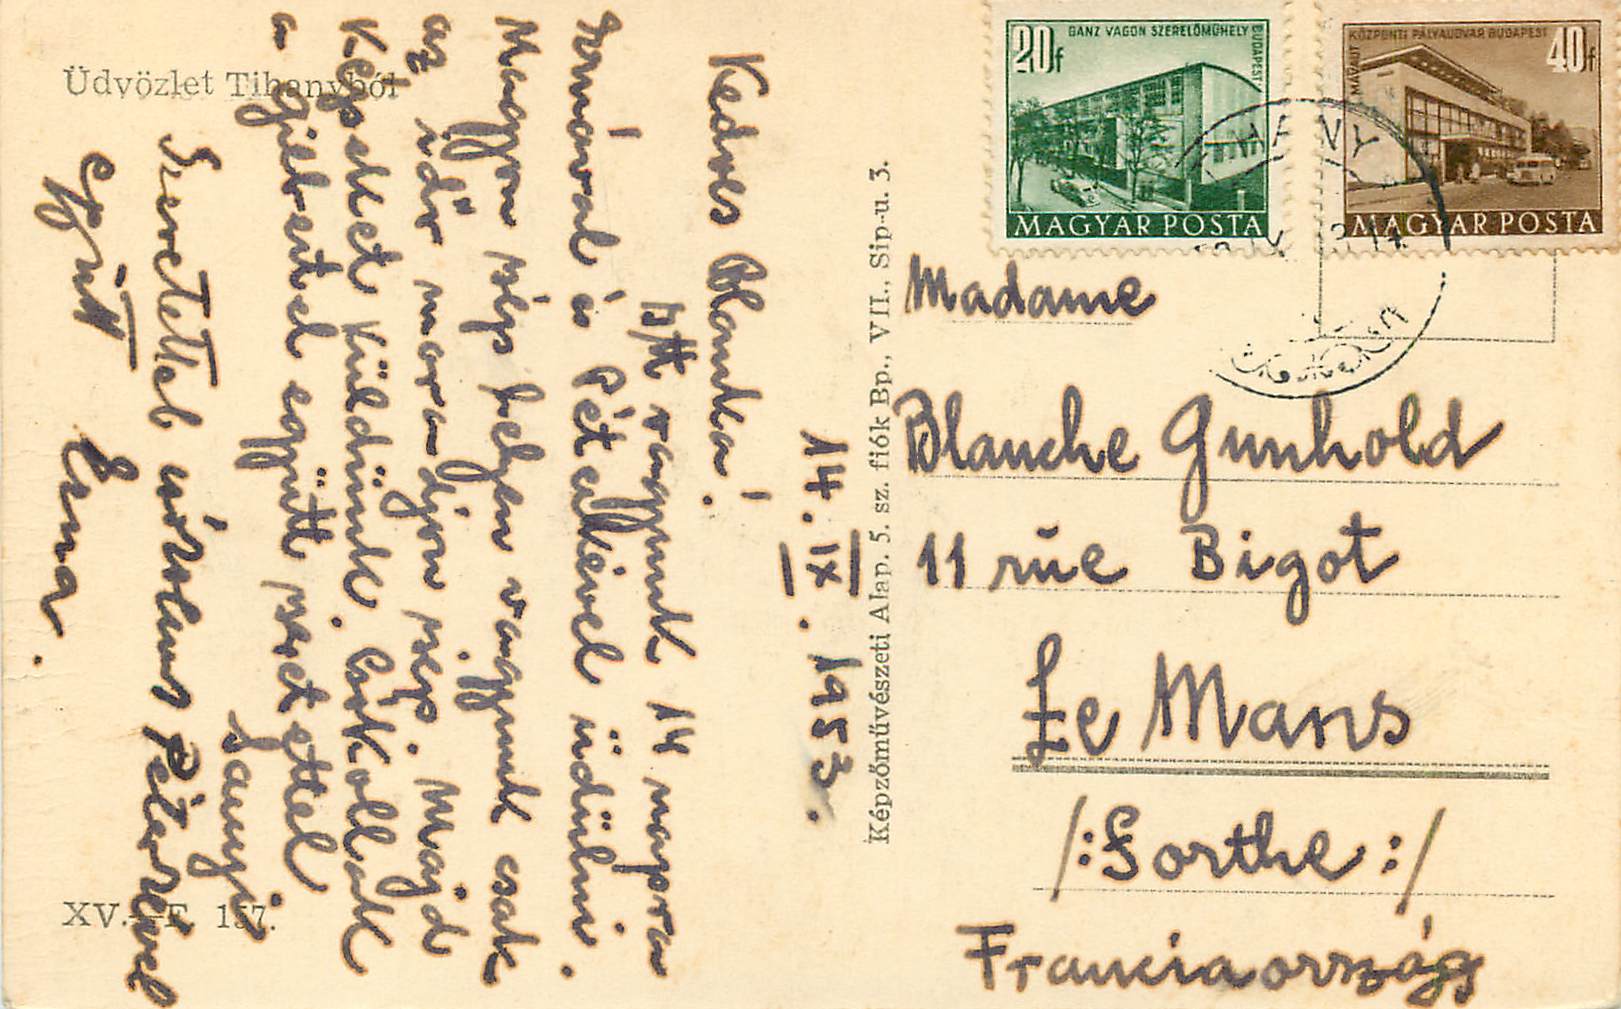 Üdvözlet Tihanyból
14. IX. 1953.
Kedves Blanka!
Itt vagyunk 14 napra
Ermával és Péterkével üdülni.
Nagyon szép helyen vagyunk csak
az idő maradjon szép. Majd
képeket küldünk. Csókollak
a gilbertel együtt szeretettel
Sanyi
Szeretettel csókol Péterkével
együtt Erna.
XV.-F. 157.
Képzőművészeti Alap. 5. sz. fiók Bp., VII., Sip-u. 3.
20f
GANZ VAGON SZERELŐMŰHELY BUDAPEST
MAGYAR POSTA
40f
MÁVAUT KÖZPONTI PÁLYAUDVAR BUDAPEST
MAGYAR POSTA
Madame
Blanche Gunhold
11 rue Bigot
Le Mans
/:Sorthe:/
Franciaország